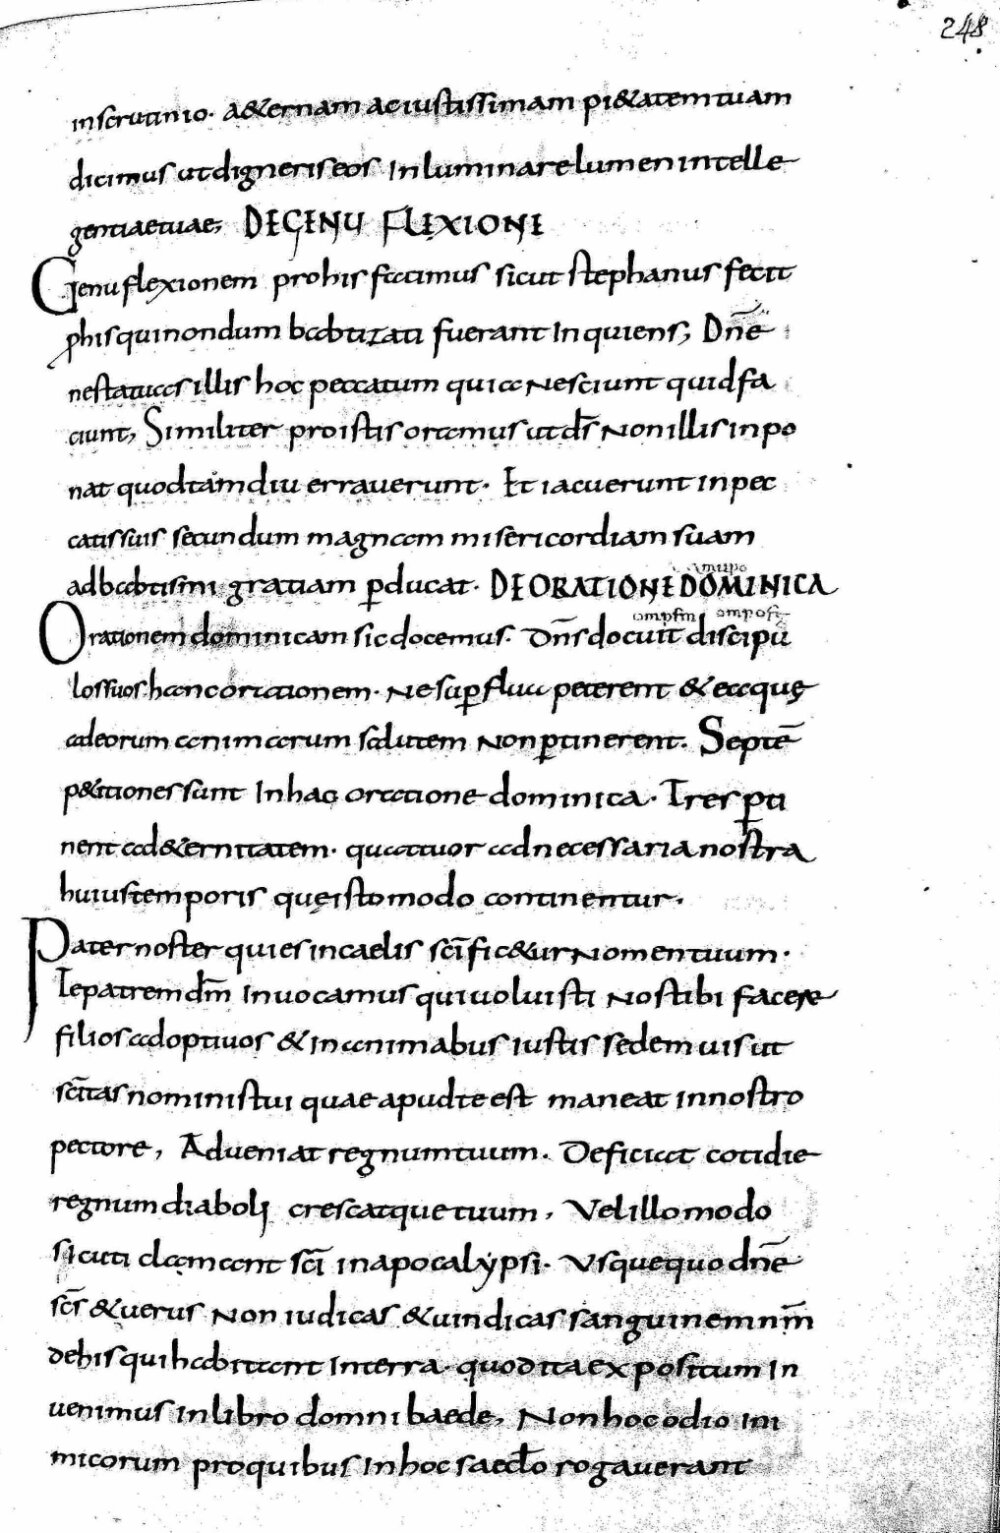 248
inscrutinio. a&ernam aciustissimam pi&atem tuam
dicimus ut digneris eos Inluminare lumen intelle
gentiae tuae; DEGENU FLEXIONE
Genu flexionem prohis facimus sicut stephanus fecit
phis qui nondum babtizati fuerant Inquiens; Dn̄e
ne statuas illis hoc peccatum quia Nesciunt quid fa
ciunt; Similiter pro istis oramus ut dr̄ Non illis inpo
nat quod tamdiu errauerunt. Et iacuerunt in pec
catis suis secundum magnam misericordiam suam
ad babtismi gratiam p̱ducat. DE ORATIONE DOMINICA
Orationem dominicam sic docemus. Dn̄s docuit discipu
los suos hanc orationem. Ne sup̱flua peterent & eaque
adeorum animarum salutem Non p̱tinerent. Septē
p&itiones sunt Inhac oratione dominica. Tres p̱ti
nent ad &ernitatem. quattuor ad necessaria nostra
huius temporis quę isto modo continentur.
Pater noster qui es in caelis sc̄ific&ur Nomen tuum.
Te patrem dm̄ Inuocamus qui uoluisti Nos tibi facere
filios adoptiuos & In animabus iustis sedem uis ut
sc̄itas nominis tui quae apud te est maneat in nostro
pectore, Adueniat regnum tuum. Deficiat cotidie
regnum diaboli crescatque tuum, Vel illo modo
sicuti clamant sc̄i in apocalypsi. Vsquequo dn̄e
sc̄s & uerus Non iudicas & uindicas sanguinem nm̄
de his qui habitant In terra. quod ita expositum In
uenimus In libro domni baede, Non hoc odio Ini
micorum pro quibus In hoc saecl̄o rogauerant